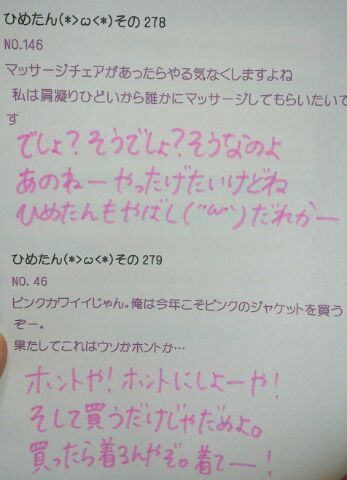 ひめたん(*>ω<*)その278
NO.146
マッサージチェアがあったらやる気なくしますよね
私は肩凝りひどいから誰かにマッサージしてもらいたいで
す
でしょ?そうでしょ?そうなのよ
あのねーやったげたいけどね
ひめたんもやばし(´ω`)だれかー
ひめたん(*>ω<*)その279
NO.46
ピンクカワイイじゃん。俺は今年こそピンクのジャケットを買う
ぞー。
果たしてこれはウソかホントか…
ホントや!ホントにしよーや!
そして買うだけじゃだめよ。
買ったら着るんやぞ。着てー!